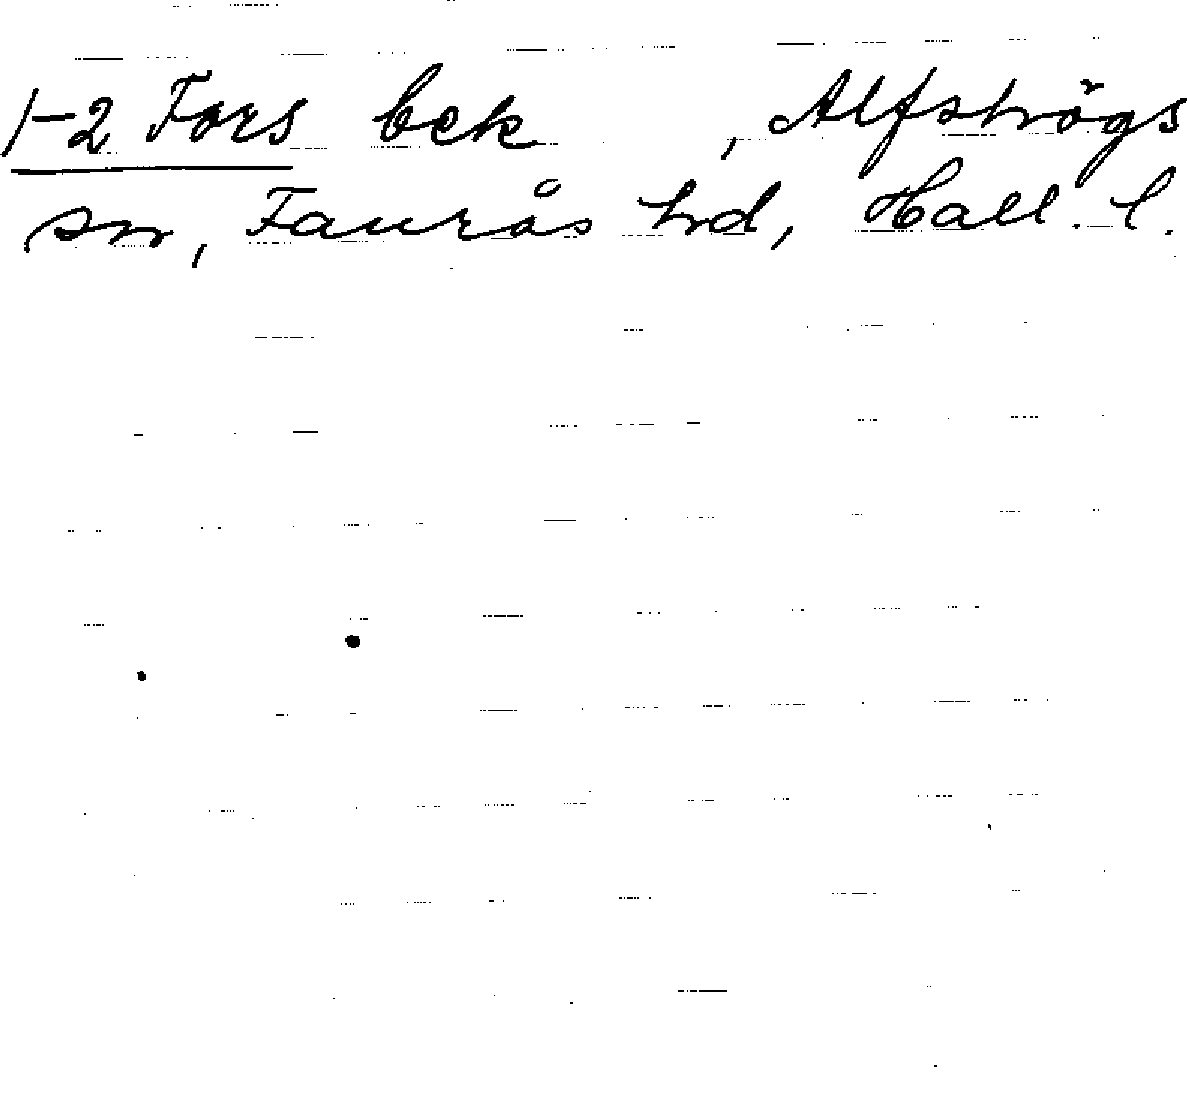 1-2 Fors bek , Alfshögs
sn, Faurås hd, Hall. l.